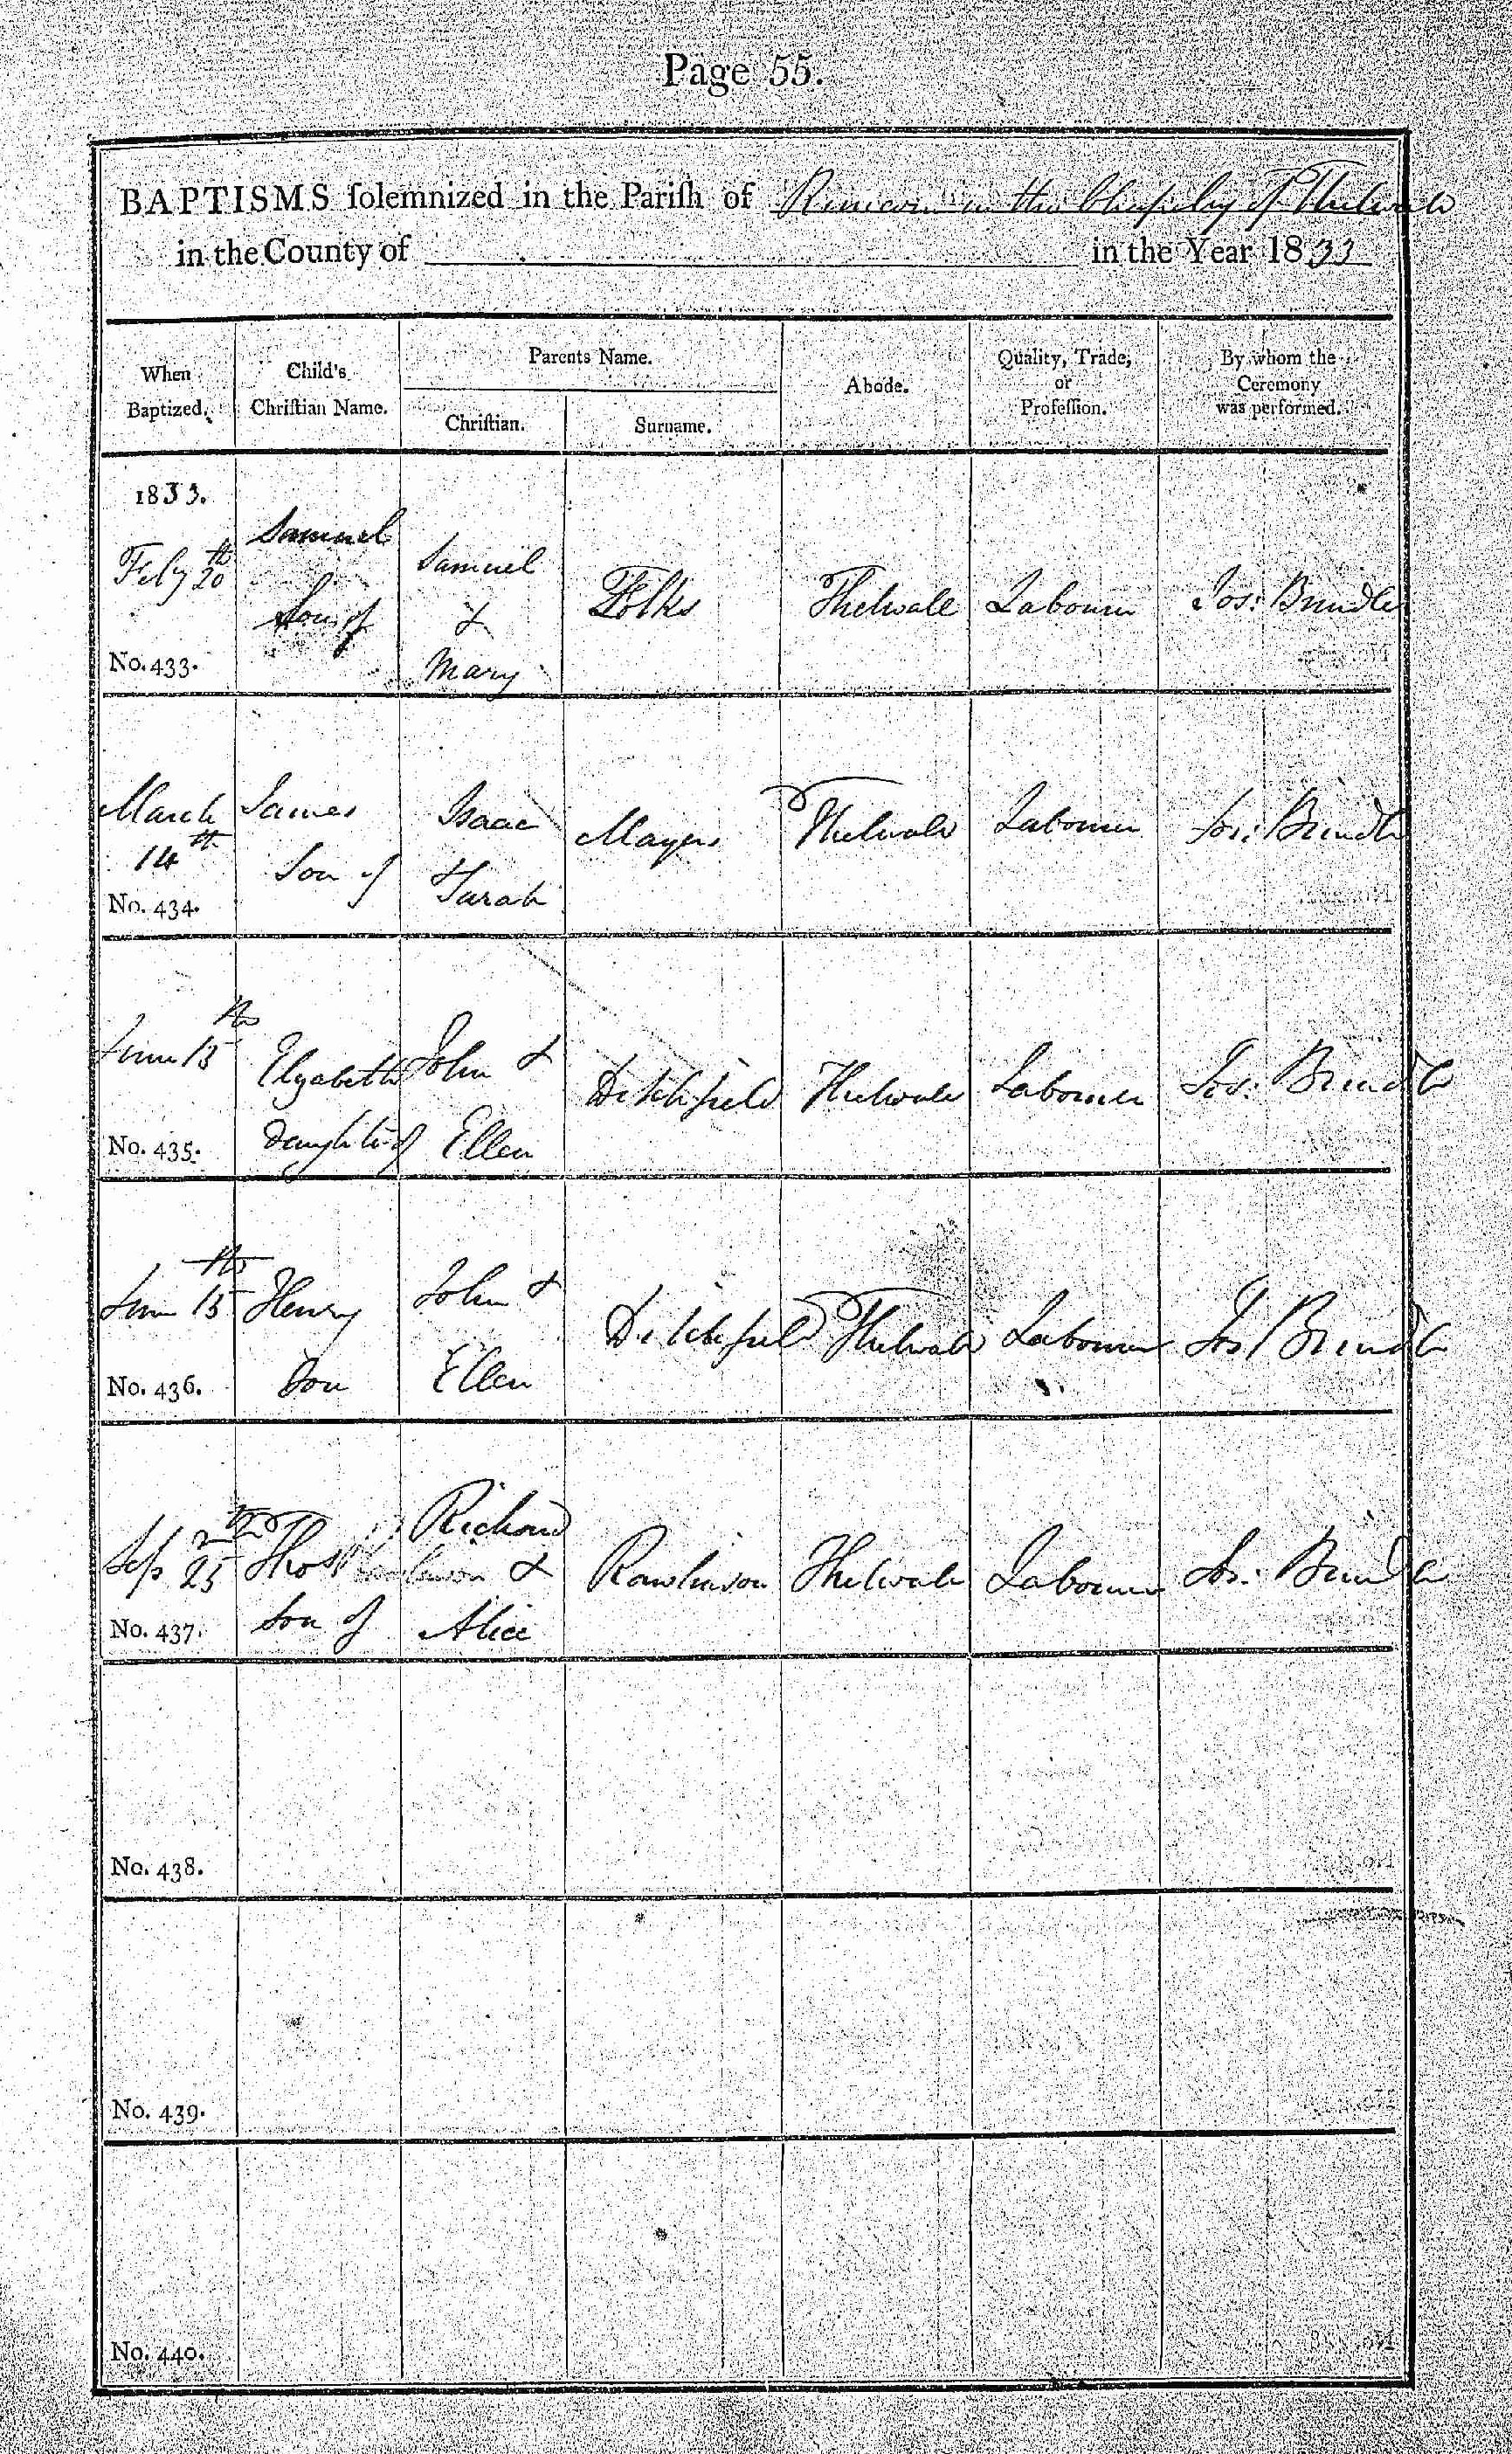 Page 55.
BAPTISMS solemnized in the Parish of Runcorn in the Chapelry of Thelwale
in the County of in the Year 1833
When Baptized. Child's Christian Name. Parents Name. Christian. Surname. Abode. Quality, Trade, or Profession. By whom the Ceremony was performed.
1833.
Feby 20th Samuel Son of Samuel & Mary Folks Thelwall Labourer Jos: Brindle
No. 433.
March 14th James Son of Isaac & Sarah Mayers Thelwale Labourer Jos: Brindle
No. 434.
June 15th Elizabeth Daughter of John & Ellen Ditchfield Thelwale Labourer Jos: Brindle
No. 435.
June 15th Henry Son John & Ellen Ditchfield Thelwale Labourer Jos Brindle
No. 436.
Sep 25th Thos Son of Richard & Alice Rawlinson Thelwale Labourer Jos: Brindle
No. 437.
No. 438.
No. 439.
No. 440.